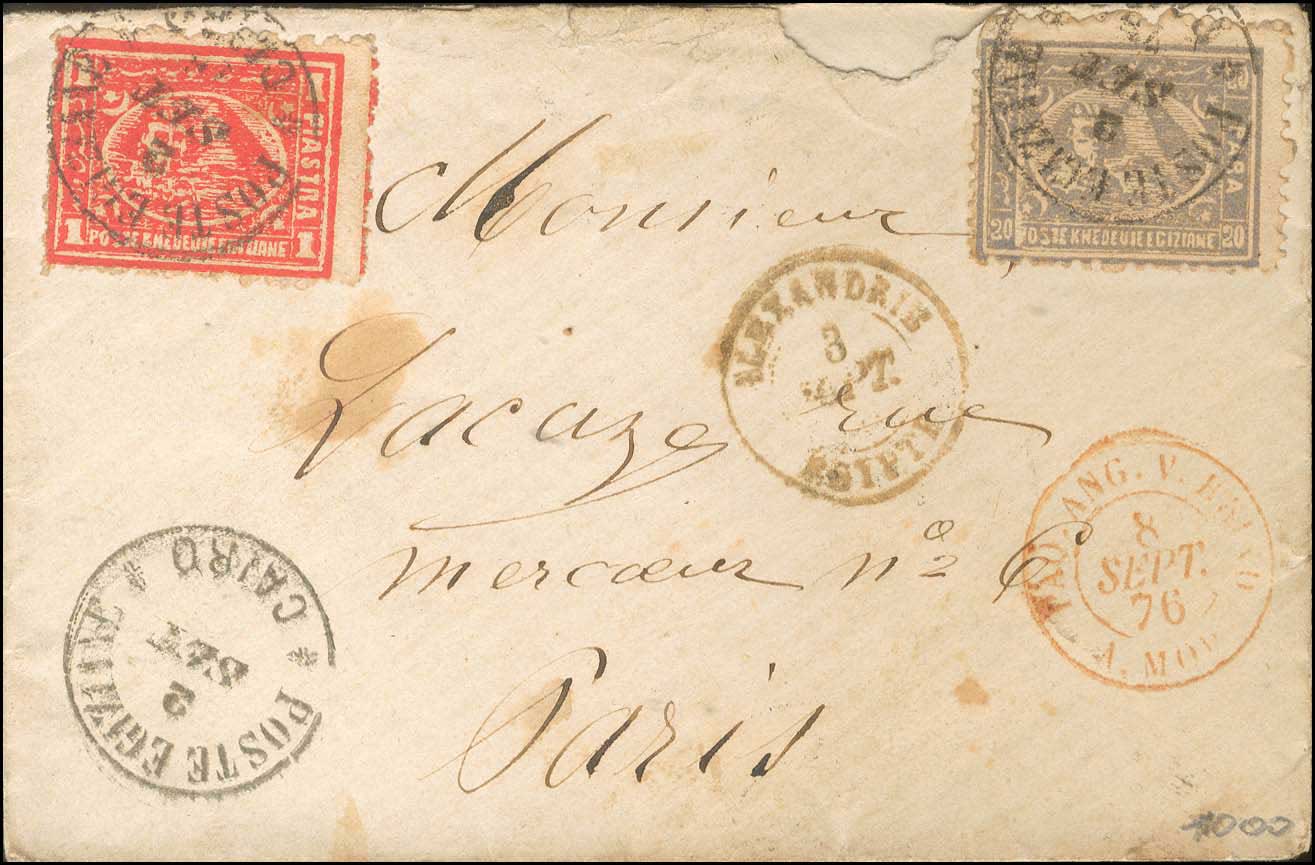 PIASTRA
1 POSTE KHEDEUIE EGIZIANE 1
POSTE EGIZIANE
SET
PARA
20 POSTE KHEDEUIE EGIZIANE 20
POSTE EGIZIANE
2
SET
Monsieur,
ALEXANDRIE
3
SEPT.
EGIPTE
Lacaze rue
PAQ. ANG. V.
8
SEPT.
76
A. MOD
mercœur nº 6
POSTE EGIZIANE
CAIRO
2
SET
Paris
1000